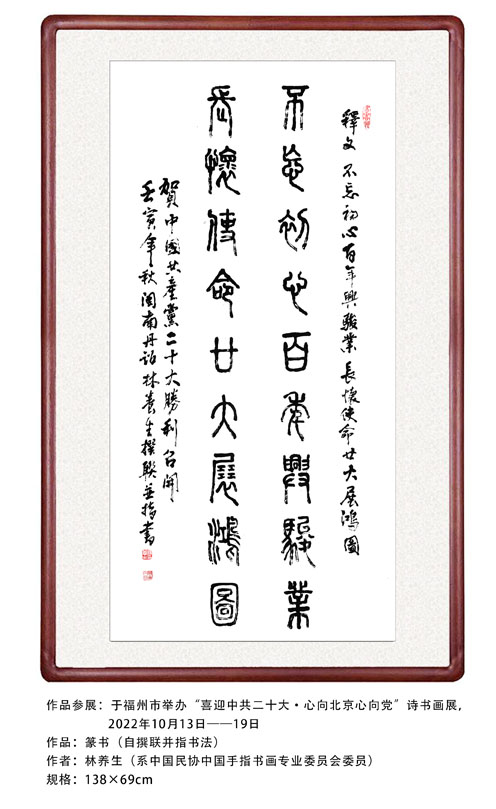 釋文 不忘初心百年興駿業 長懷使命廿大展鴻圖
不忘初心百年興駿業
長懷使命廿大展鴻圖
賀中國共產黨二十大勝利召開
壬寅年秋閩南丹詔林養生撰聯並指書
作品参展：于福州市举办“喜迎中共二十大·心向北京心向党”诗书画展，
2022年10月13日——19日
作品：篆书（自撰联并指书法）
作者：林养生（系中国民协中国手指书画专业委员会委员）
规格：138×69cm